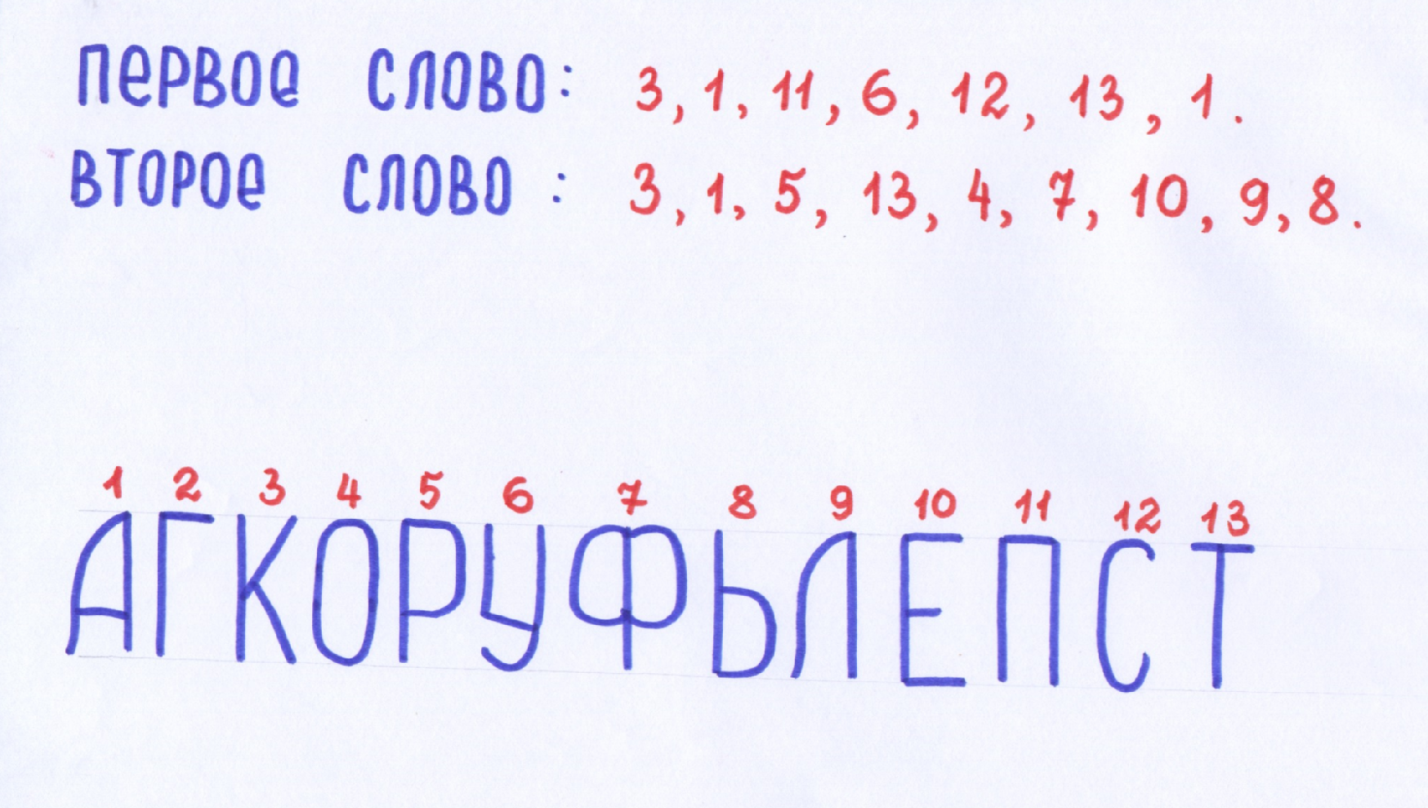 первое слово: 3, 1, 11, 6, 12, 13, 1.
второе слово : 3, 1, 5, 13, 4, 7, 10, 9, 8.
1 2 3 4 5 6 7 8 9 10 11 12 13
АГКОРУФЬЛЕПСТ